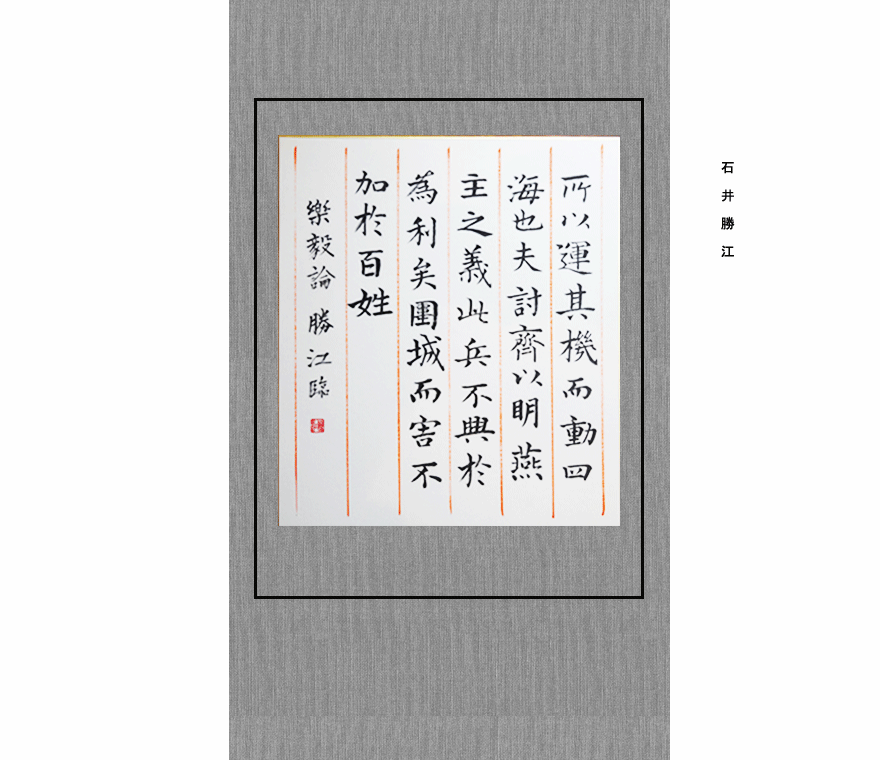 所以運其機而動四
海也夫討齊以明燕
主之義此兵不興於
為利矣圍城而害不
加於百姓
樂毅論 勝江臨
石井勝江